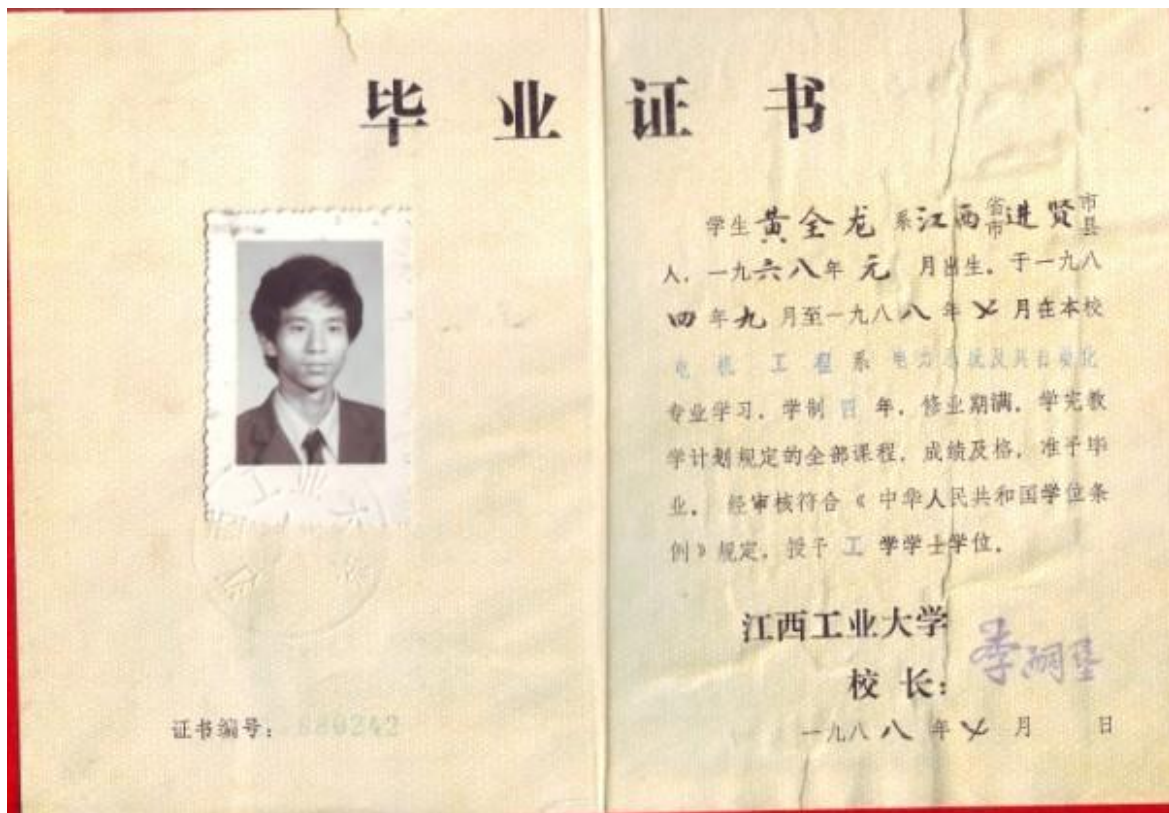 毕业证书
学生黄全龙系江西省市进贤市县
人，一九六八年元月出生。于一九八
四年九月至一九八八年乂月在本校
电机工程系电力系统及其自动化
专业学习，学制四年，修业期满，学完教
学计划规定的全部课程，成绩及格，准予毕
业。经审核符合《中华人民共和国学位条
例》规定，授予工学学士学位。
江西工业大学
校长：
一九八八年乂月 日
证书编号：880242
工业大